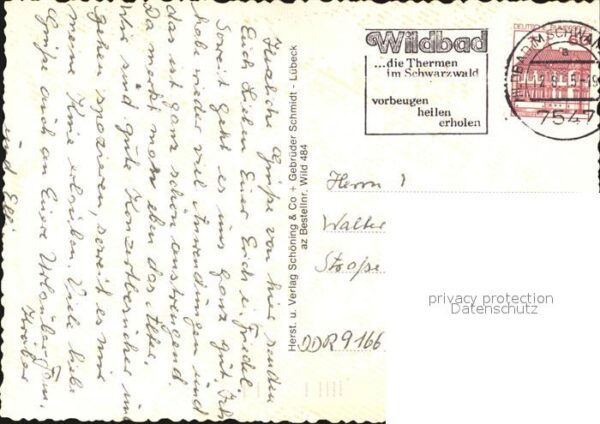 Herzliche Grüße von hier senden
Euch Lieben Euer Erich u. Friedel.
Soweit geht es uns ganz gut. Ich
hab wieder viel Anwendungen und
das ist ganz schön anstrengend.
Da merkt man eben das Alter.
Wir sind gute Konzertbesucher und
gehen spazieren, soweit es mir
meine Knie erlauben. Viele liebe
Grüße auch an Eure Urlauber
und Elli
Herst. u. Verlag Schöning & Co + Gebrüder Schmidt - Lübeck
az Bestellnr. Wild 484
Wildbad
...die Thermen
im Schwarzwald
vorbeugen
heilen
erholen
DEUTSCHE BUNDES
WILDBAD IM SCHWAR
a
7547
Herrn
Walter
DDR 9166
privacy protection
Datenschutz